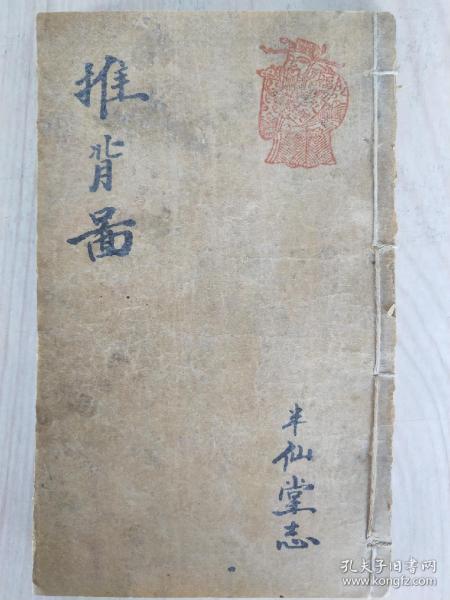 推背畵
半仙堂志
孔夫子旧书网
www.kongfz.com